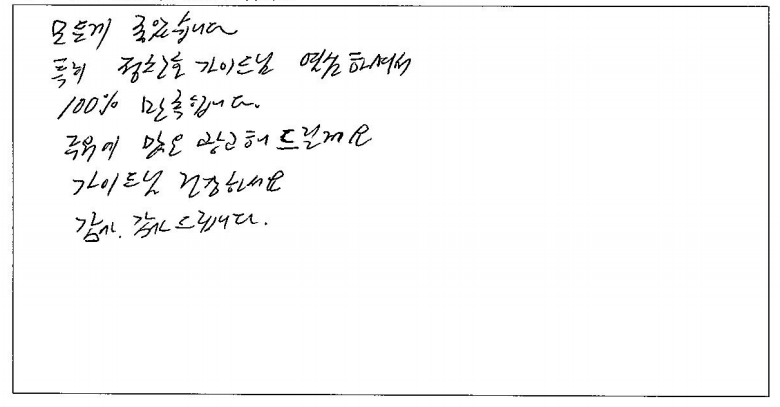 모든게 좋았습니다
특히 정찬호 가이드님 열심하셔서
100% 만족합니다.
주위에 많은 광고해 드릴께요
가이드님 건강하세요
감사. 감사드립니다.